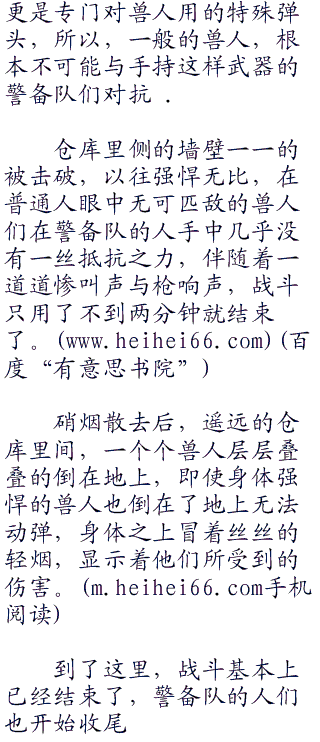 更是专门对兽人用的特殊弹
头，所以，一般的兽人，根
本不可能与手持这样武器的
警备队们对抗 .
仓库里侧的墙壁一一的
被击破，以往强悍无比，在
普通人眼中无可匹敌的兽人
们在警备队的人手中几乎没
有一丝抵抗之力，伴随着一
道道惨叫声与枪响声，战斗
只用了不到两分钟就结束
了。(www.heihei66.com)(百
度“有意思书院”)
硝烟散去后，遥远的仓
库里间，一个个兽人层层叠
叠的倒在地上，即使身体强
悍的兽人也倒在了地上无法
动弹，身体之上冒着丝丝的
轻烟，显示着他们所受到的
伤害。(m.heihei66.com手机
阅读)
到了这里，战斗基本上
已经结束了，警备队的人们
也开始收尾